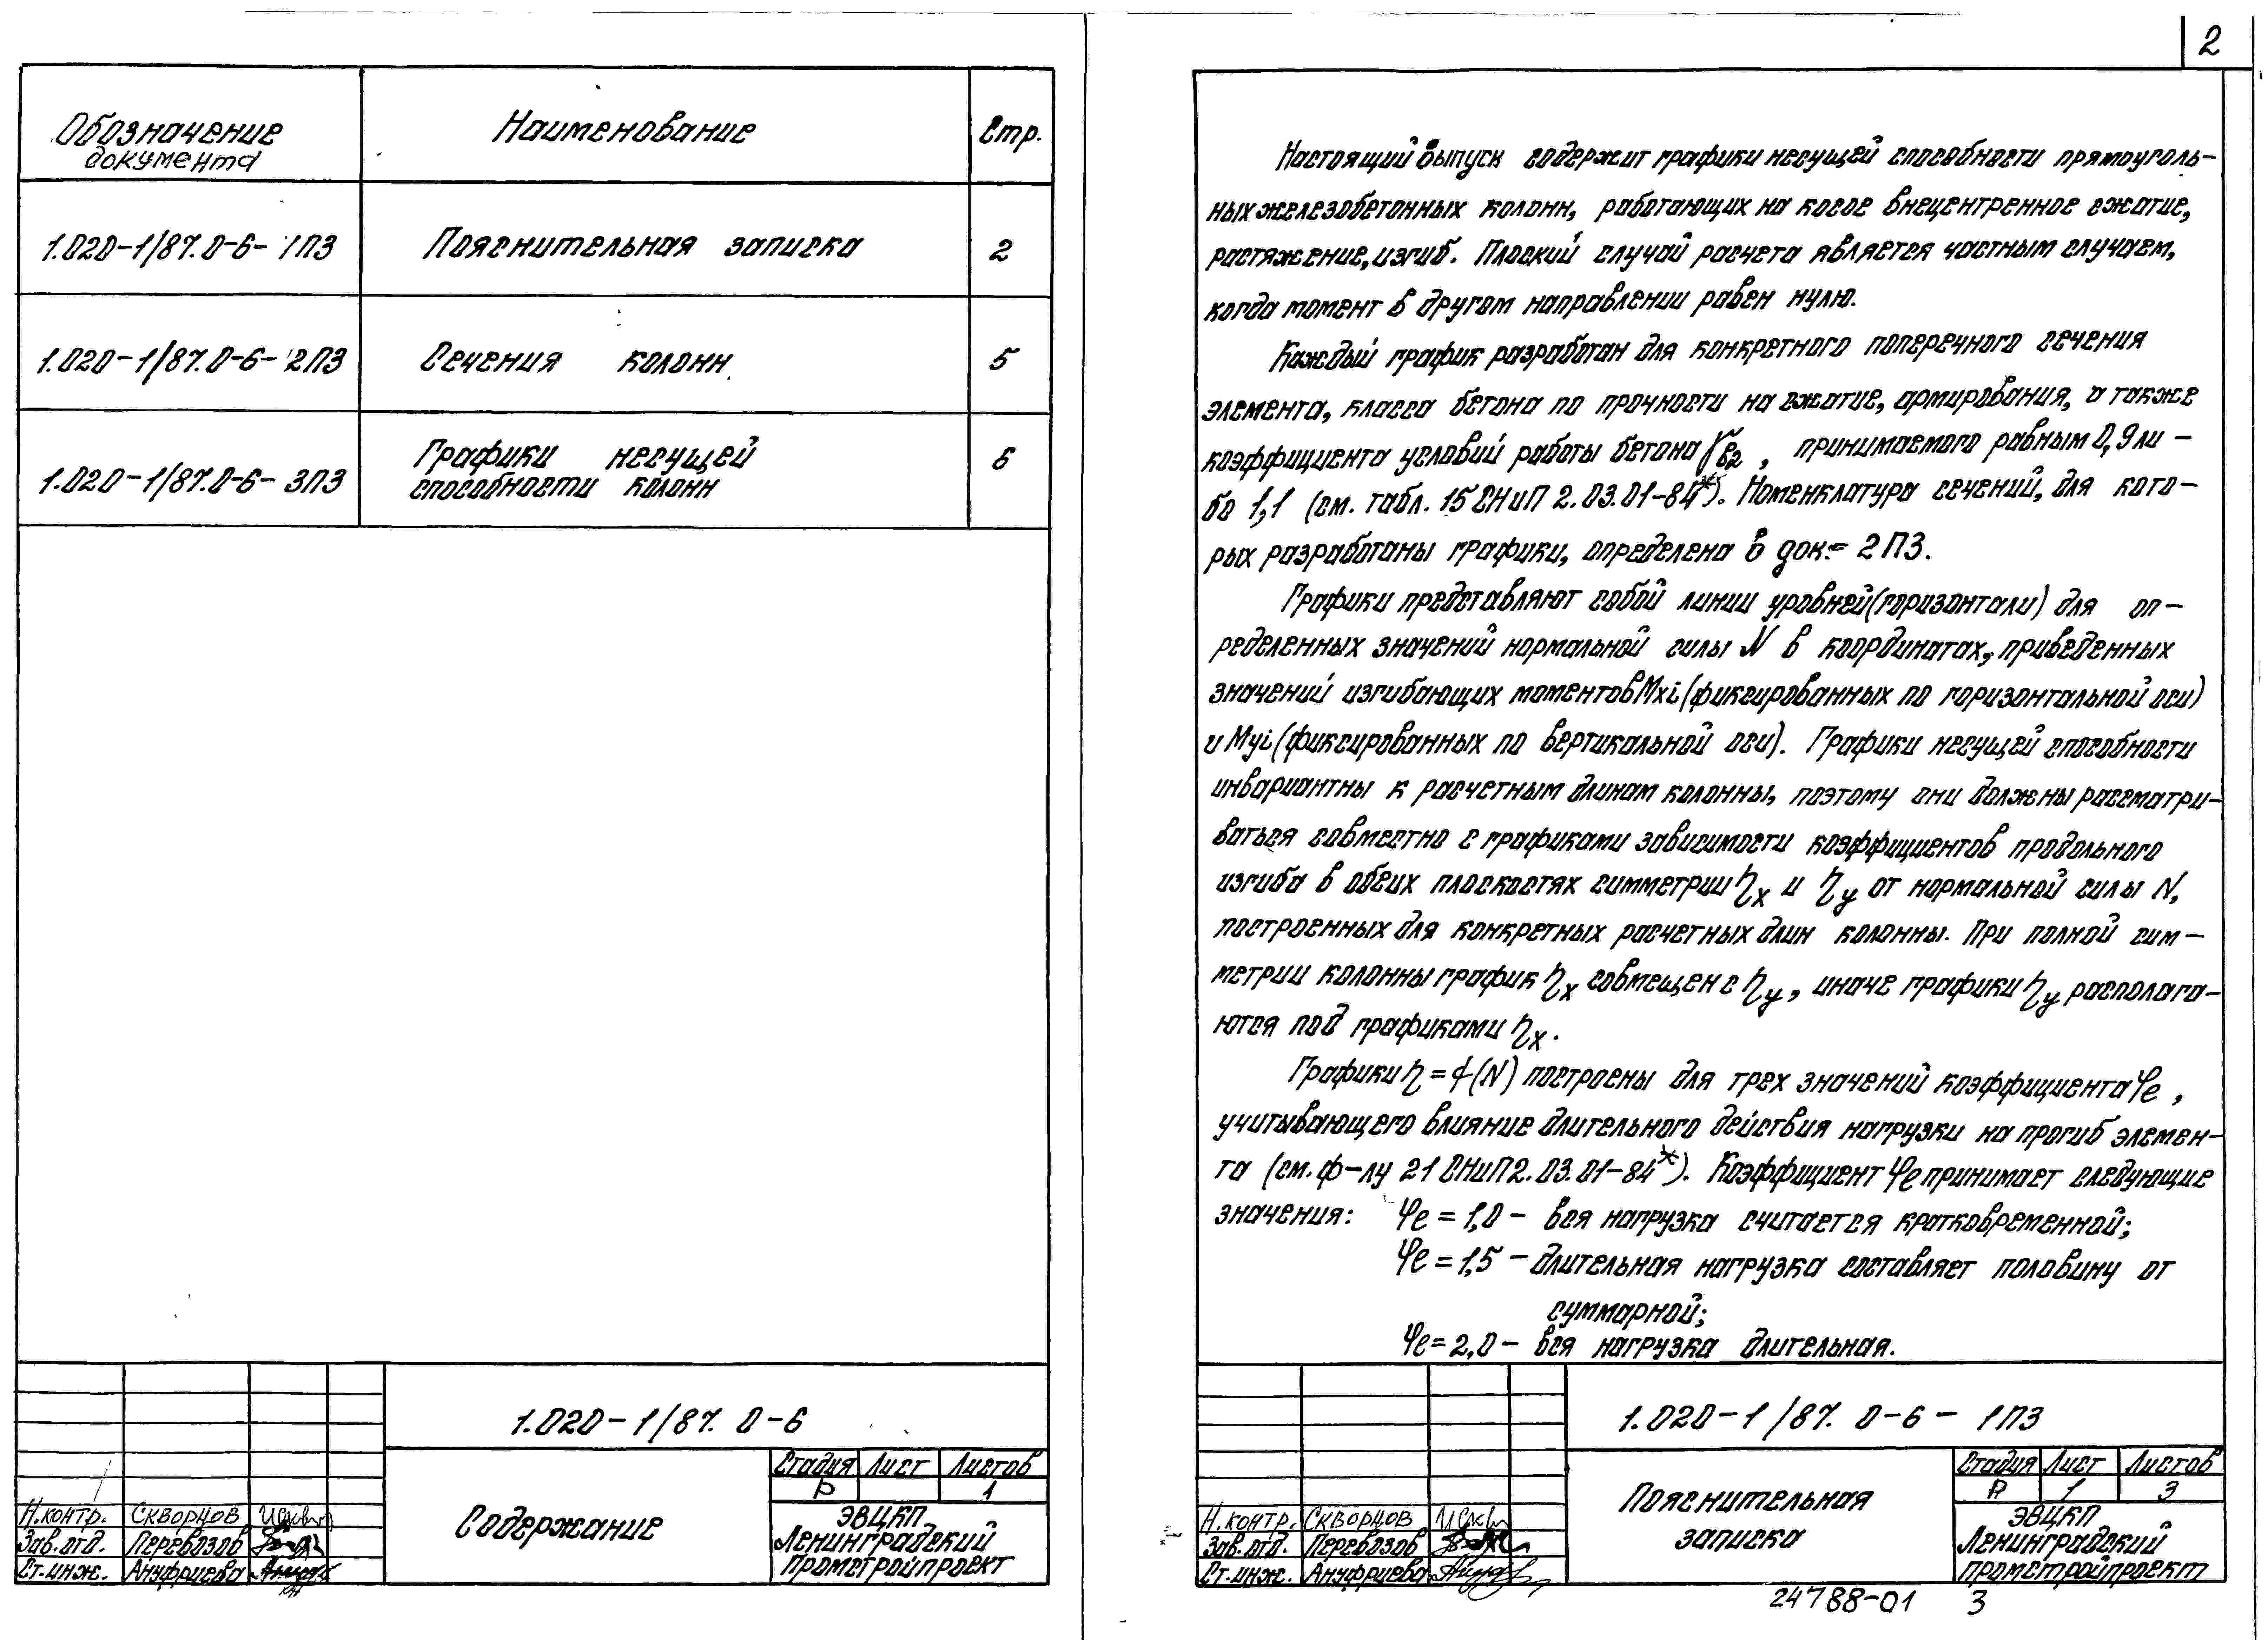 Обозначение документа
Наименование
Стр.
1.020-1/87.0-6-1ПЗ
Пояснительная записка
2
1.020-1/87.0-6-2ПЗ
Сечения колонн
5
1.020-1/87.0-6-3ПЗ
Графики несущей
способности колонн
6
1.020-1/87. 0-6
Содержание
Стадия Лист Листов
Р 1
ЭВЦКП
Ленинградский
Промстройпроект
Н.контр. Скворцов
Зав.отд. Перевозов
Ст.инж. Ануфриева
2
Настоящий выпуск содержит графики несущей способности прямоуголь-
ных железобетонных колонн, работающих на косое внецентренное сжатие,
растяжение, изгиб. Плоский случай расчета является частным случаем,
когда момент в другом направлении равен нулю.
Каждый график разработан для конкретного поперечного сечения
элемента, класса бетона по прочности на сжатие, армирования, а также
коэффициента условий работы бетона γб2, принимаемого равным 0,9 ли-
бо 1,1 (см. табл. 15 СНиП 2.03.01-84*). Номенклатура сечений, для кото-
рых разработаны графики, определена в док.- 2ПЗ.
Графики представляют собой линии уровней (горизонтали) для оп-
ределенных значений нормальной силы N в координатах, приведенных
значений изгибающих моментов Mxi (фиксированных по горизонтальной оси)
и Myi (фиксированных по вертикальной оси). Графики несущей способности
инвариантны к расчетным длинам колонны, поэтому они должны рассматри-
ваться совместно с графиками зависимости коэффициентов продольного
изгиба в обеих плоскостях симметрии ηx и ηy от нормальной силы N,
построенных для конкретных расчетных длин колонны. При полной сим-
метрии колонны график ηx совмещен с ηy, иначе графики ηy располага-
ются под графиками ηx.
Графики η = f(N) построены для трех значений коэффициента φe,
учитывающего влияние длительного действия нагрузки на прогиб элемен-
та (см. ф-лу 21 СНиП 2.03.01-84*). Коэффициент φe принимает следующие
значения: φe = 1,0 - вся нагрузка считается кратковременной;
φe = 1,5 - длительная нагрузка составляет половину от
суммарной;
φe = 2,0 - вся нагрузка длительная.
1.020-1/87. 0-6- 1ПЗ
Пояснительная
записка
Стадия Лист Листов
Р 1 3
ЭВЦКП
Ленинградский
Промстройпроект
Н.контр. Скворцов
Зав.отд. Перевозов
Ст.инж. Ануфриева
24788-01 3